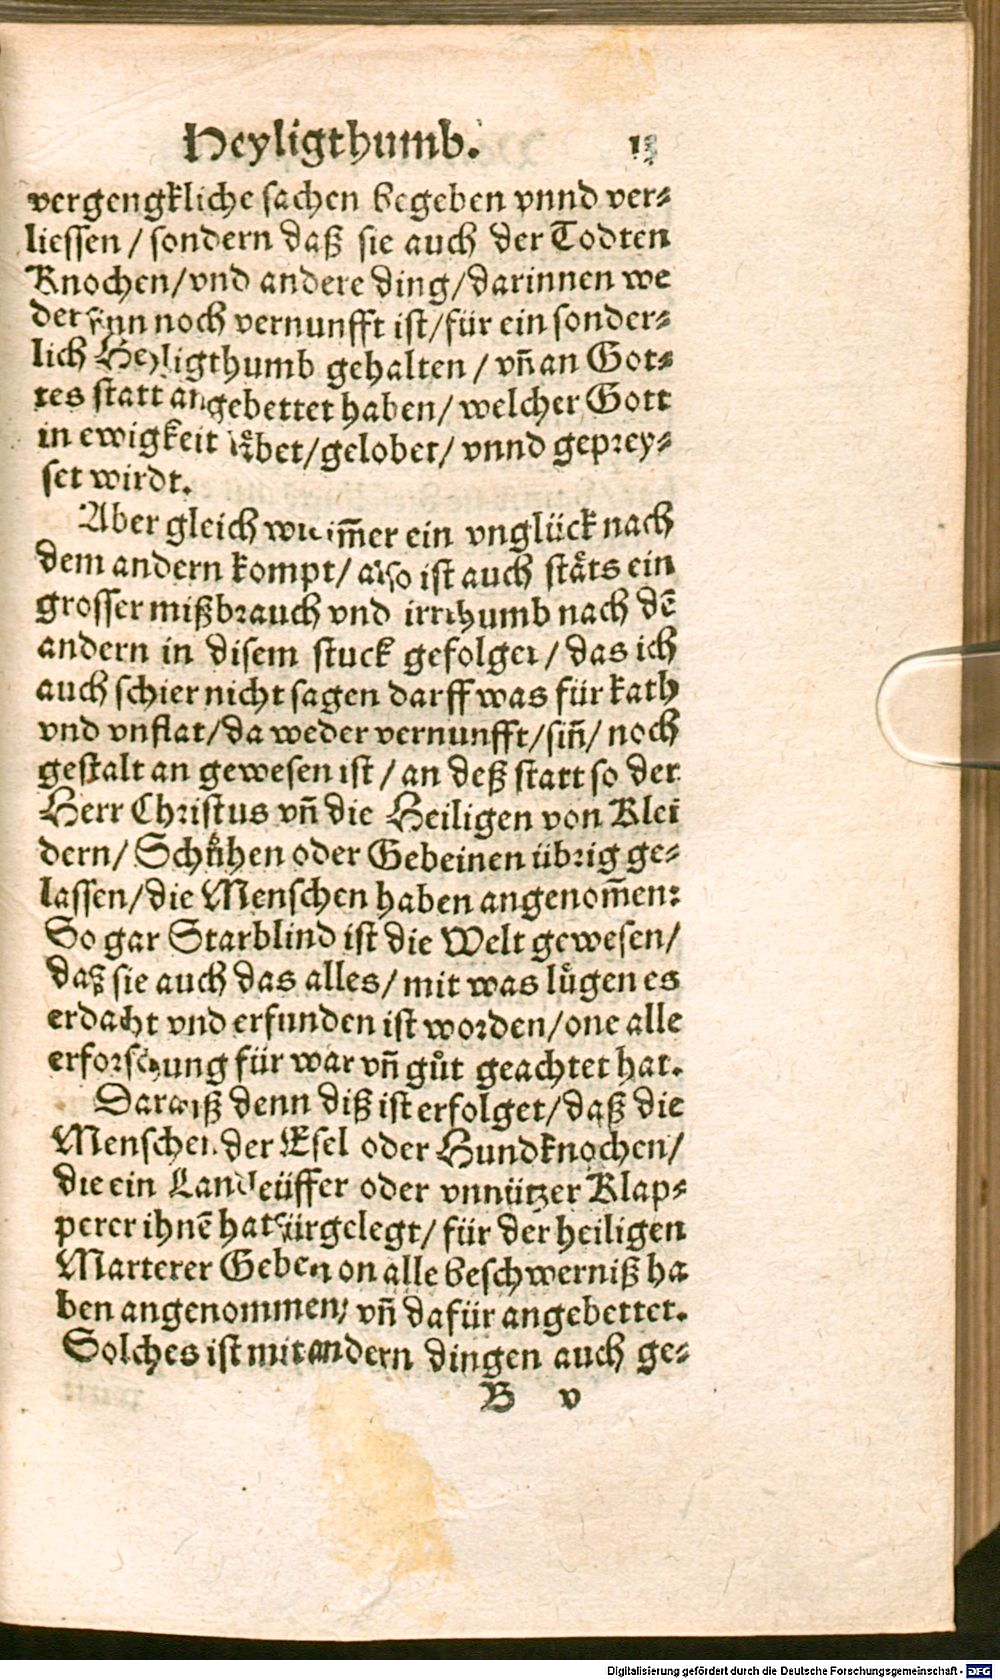 Heyligthumb. 13
vergengkliche sachen begeben vnnd ver⸗
liessen / sondern daß sie auch der Todten
Knochen/vnd andere ding/darinnen we
der synn noch vernunfft ist/für ein sonder⸗
lich Heyligthumb gehalten / vñ an Got⸗
tes statt angebettet haben/ welcher Gott
in ewigkeit lebet/gelobet/ vnnd geprey⸗
set wirdt.
Aber gleich wie im̃er ein vnglück nach
dem andern kompt/ also ist auch stäts ein
grosser mißbrauch vnd irrthumb nach dẽ
andern in disem stuck gefolget / das ich
auch schier nicht sagen darff was für kath
vnd vnflat/da weder vernunfft/siñ/ noch
gestalt an gewesen ist / an deß statt so der
Herr Christus vñ die Heiligen von Klei
dern/ Schůhen oder Gebeinen übrig ge⸗
lassen/die Menschen haben angenom̃en:
So gar Starblind ist die Welt gewesen/
daß sie auch das alles/ mit was lůgen es
erdacht vnd erfunden ist worden/one alle
erforschung für war vñ gůt geachtet hat.
Darauß denn diß ist erfolget/daß die
Menschen der Esel oder Hundknochen/
die ein Landleüffer oder vnnützer Klap⸗
perer ihnẽ hat fürgelegt/ für der heiligen
Marterer Geben on alle beschwerniß ha
ben angenommen/ vñ dafür angebettet.
Solches ist mit andern dingen auch ge⸗
B v
Digitalisierung gefördert durch die Deutsche Forschungsgemeinschaft - DFG